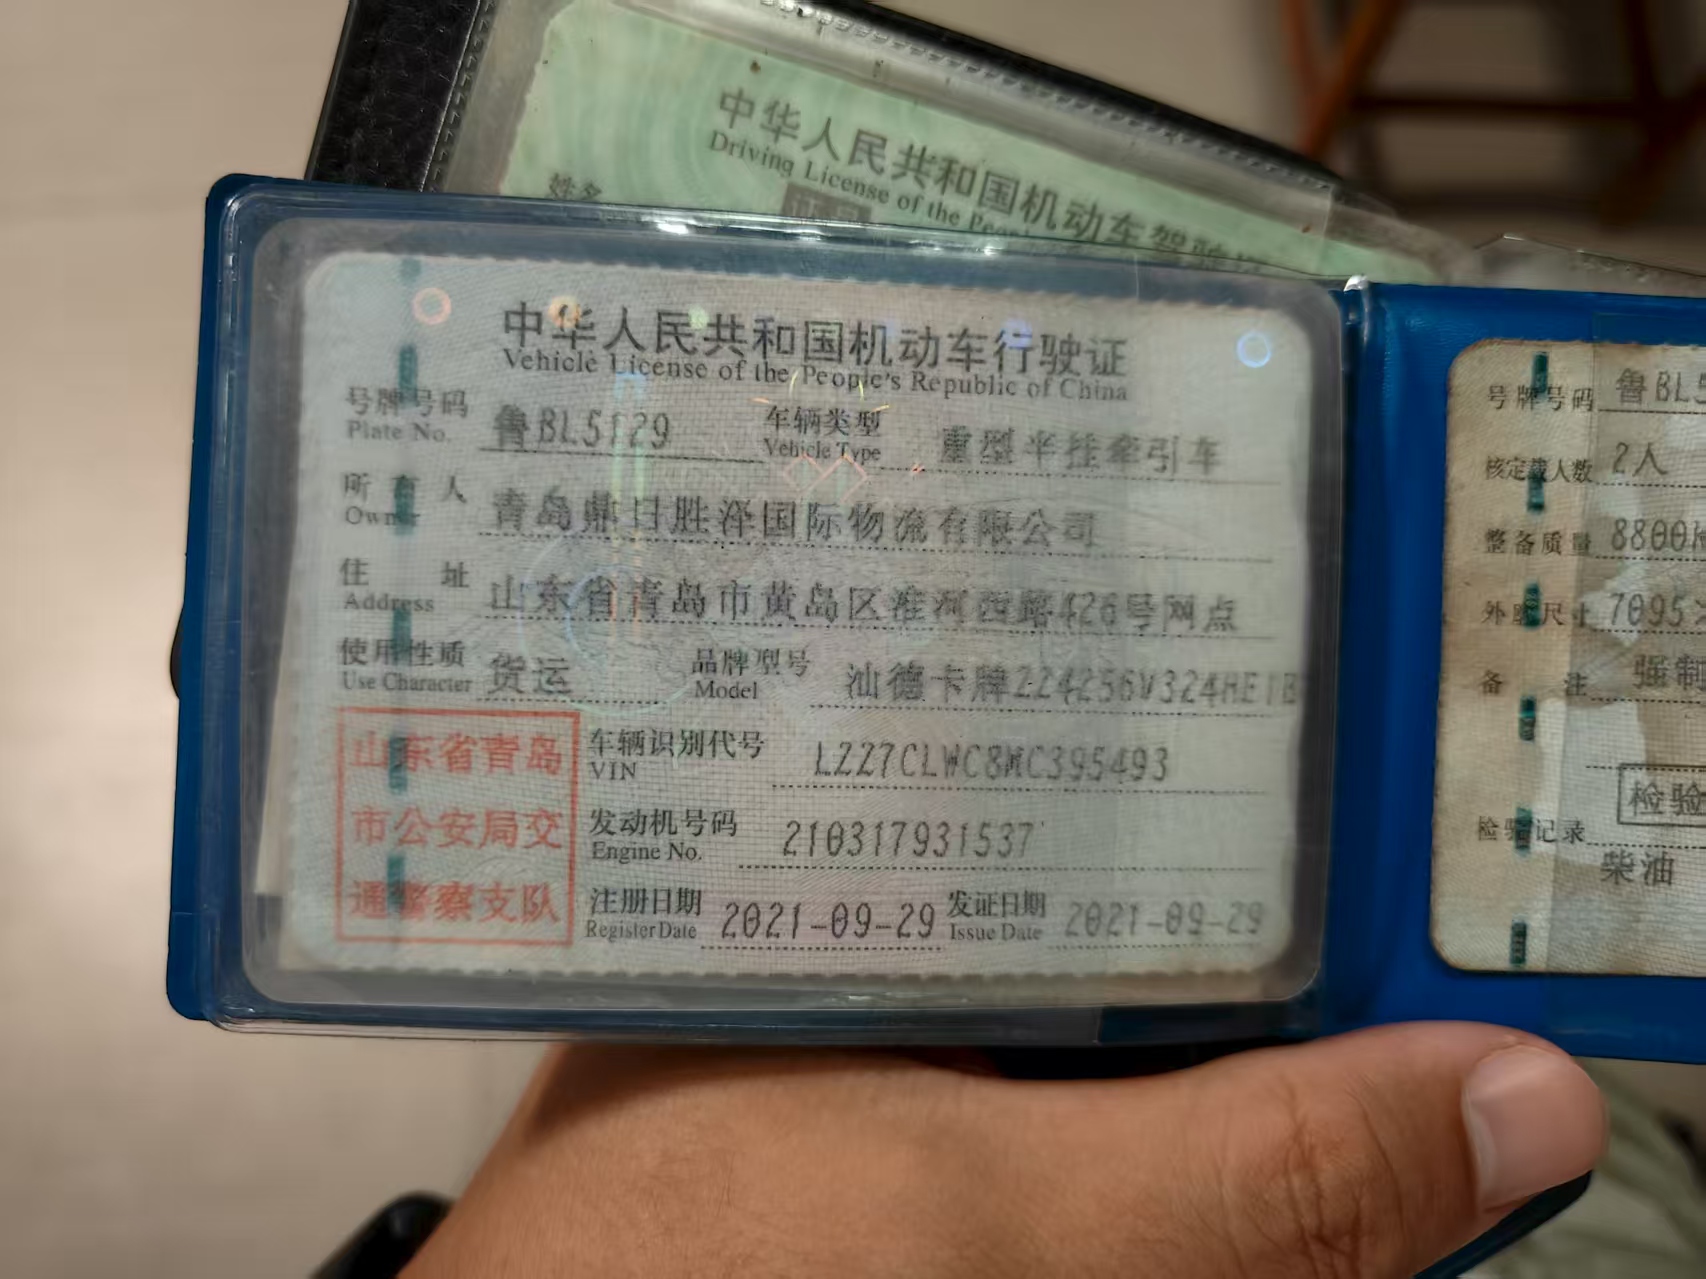 中华人民共和国机动车驾驶
Driving License of the Peop
姓名
中华人民共和国机动车行驶证
Vehicle License of the People's Republic of China
号牌号码 鲁BL5129 车辆类型 重型半挂牵引车
Plate No. Vehicle Type
所有人 青岛鼎日胜泽国际物流有限公司
Owner
住址 山东省青岛市黄岛区淮河西路426号网点
Address
使用性质 货运 品牌型号 汕德卡牌ZZ4256V324HE1B
Use Character Model
山东省青岛
市公安局交
通警察支队
车辆识别代号 LZZ7CLWC8MC395493
VIN
发动机号码 210317931537
Engine No.
注册日期 2021-09-29 发证日期 2021-09-29
Register Date Issue Date
号牌号码 鲁BL5
核定载人数 2人
整备质量 8800k
外廓尺寸 7095
备注 强制
检验
检验记录
柴油